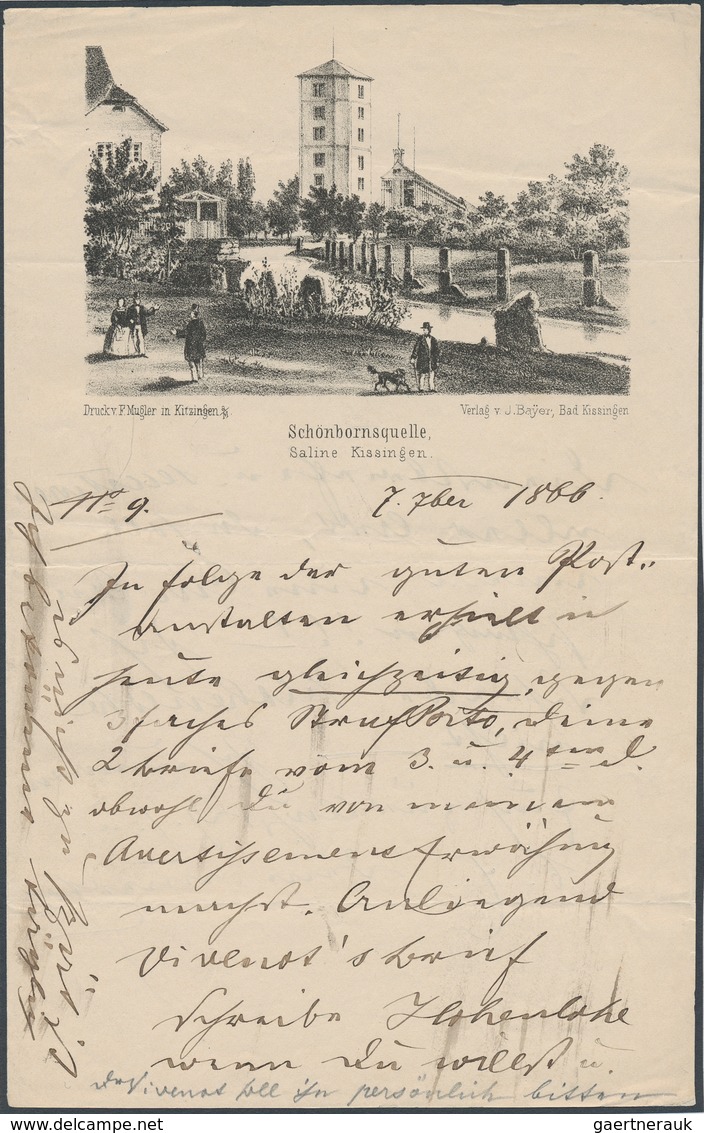 Druck v. F. Mugler in Kitzingen a/M.
Verlag v. J. Bayer, Bad Kissingen
Schönbornsquelle,
Saline Kissingen.
No 9.
7. 7ber 1866.
In folge der guten Post-
anstalten erhielt ich
heute gleichzeitig, gegen
3faches Strafporto, deine
2 briefe vom 3. u. 4ten d.
obwohl du von meinem
Avertissement Erwähnung
machst. Anliegend
Vivenot's brief
schreibe Hohenlohe
wenn du willst u.
Vivenot soll ihn persönlich bitten
gaertnerauk